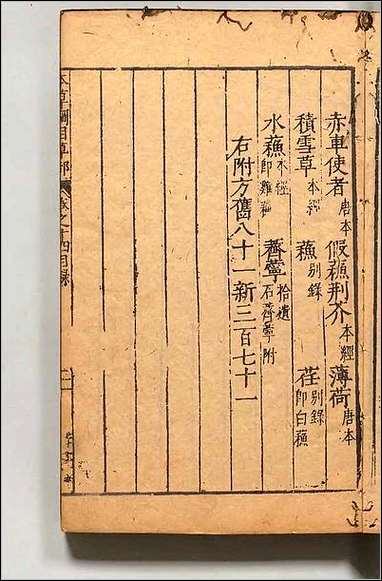 赤車使者唐本 假蘇荆芥本經 薄荷唐本
積雪草本經 蘇別錄 荏別錄即白蘇
水蘇本經即雞蘇 薺薴拾遺石薺薴附
右附方舊八十一新三百七十一
本草綱目草部 卷之十四目錄